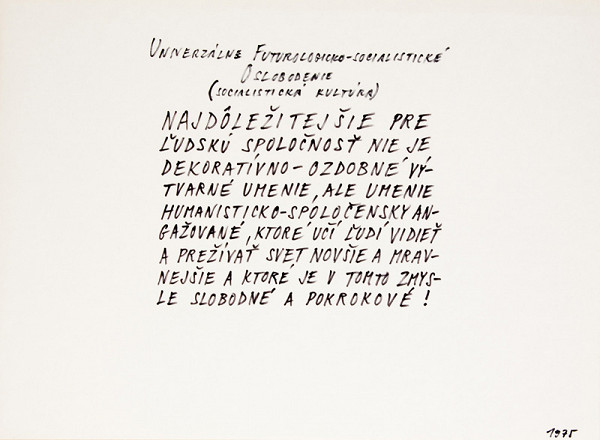 UNIVERZÁLNE FUTUROLOGICKO-SOCIALISTICKÉ
OSLOBODENIE
(SOCIALISTICKÁ KULTÚRA)
NAJDÔLEŽITEJŠIE PRE
ĽUDSKÚ SPOLOČNOSŤ NIE JE
DEKORATÍVNO-OZDOBNÉ VÝ-
TVARNÉ UMENIE, ALE UMENIE
HUMANISTICKO-SPOLOČENSKY AN-
GAŽOVANÉ, KTORÉ UČÍ ĽUDÍ VIDIEŤ
A PREŽÍVAŤ SVET NOVŠIE A MRAV-
NEJŠIE A KTORÉ JE V TOMTO ZMYS-
LE SLOBODNÉ A POKROKOVÉ!
1975